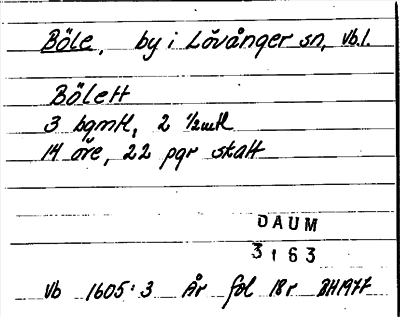 Böle, by i Lövånger sn, Vb.l.
Bölett
3 bgmtl, 2 1/2mtl
14 öre, 22 pgr skatt
DAUM
3163
Vb 1605:3 År fol 18r BH1977